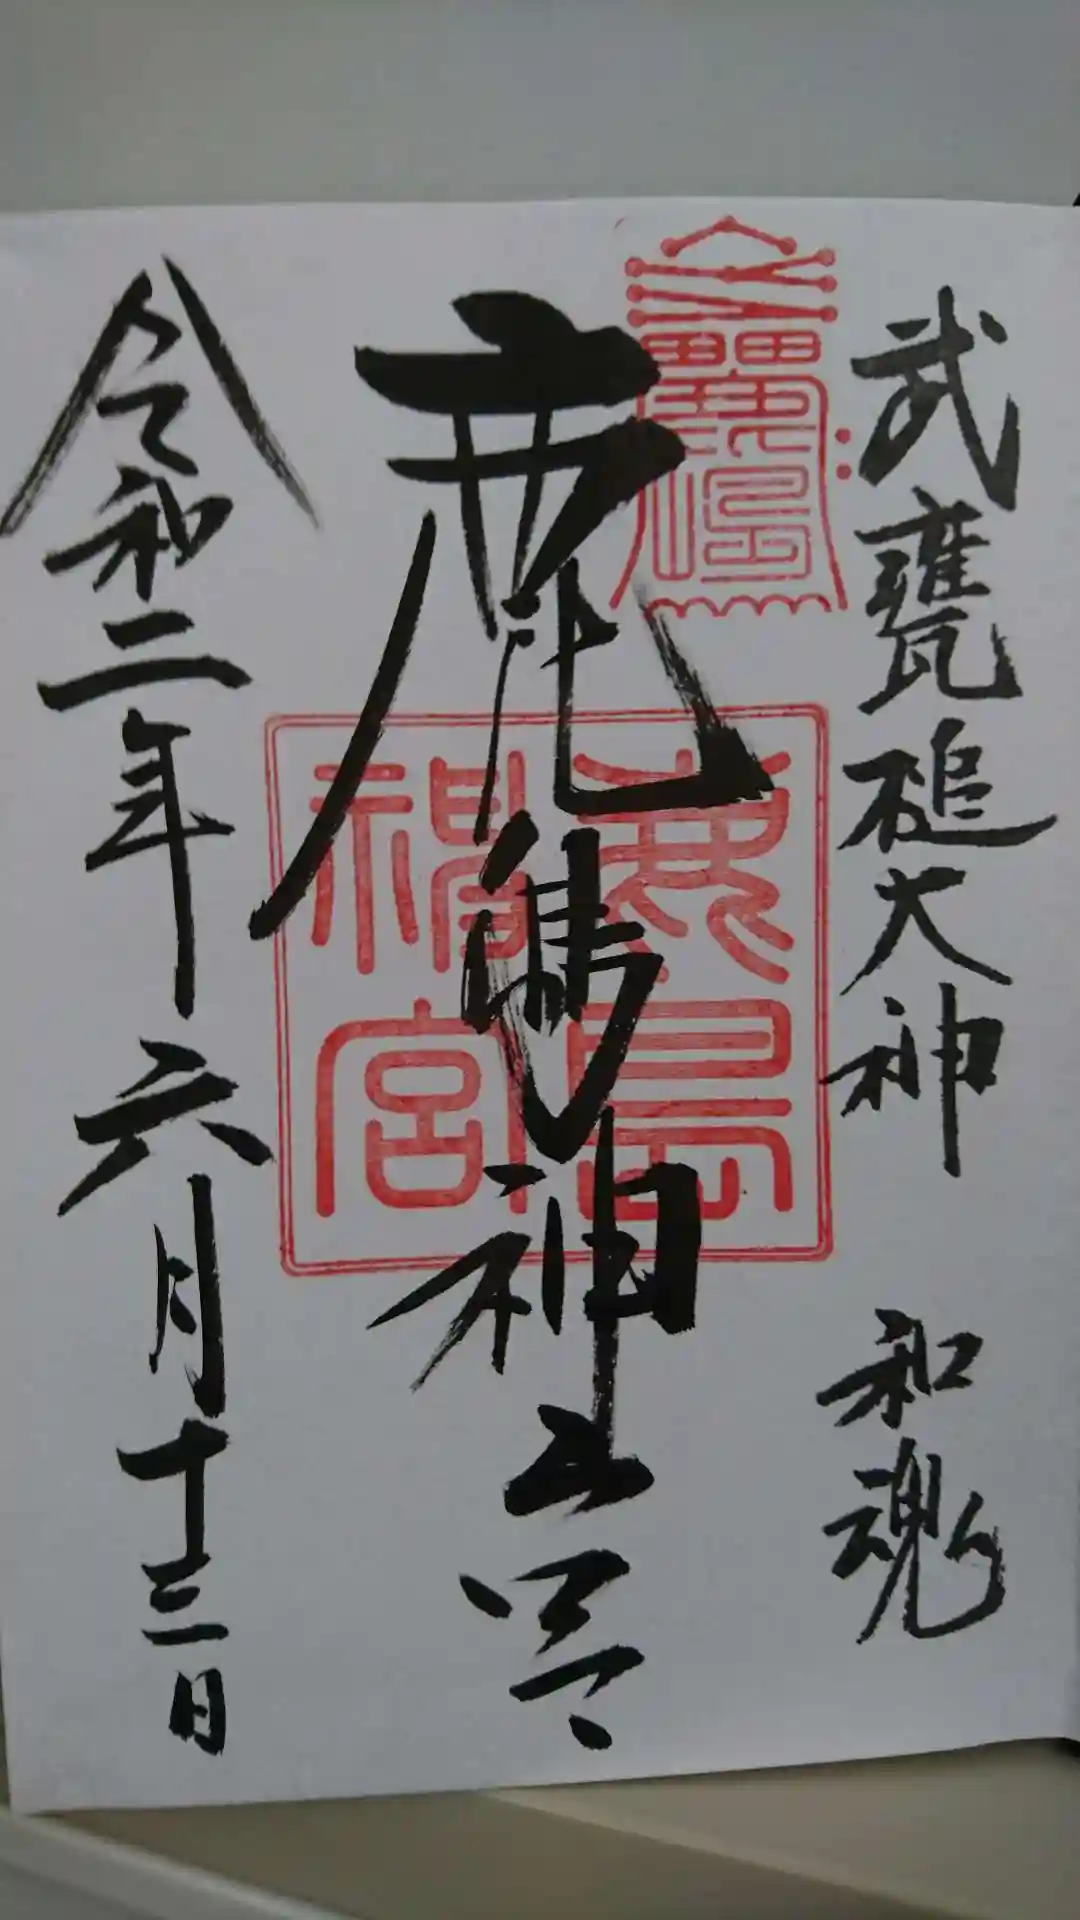 武甕槌大神　和魂
鹿嶋神
鹿島
宮
令和二年六月十三日